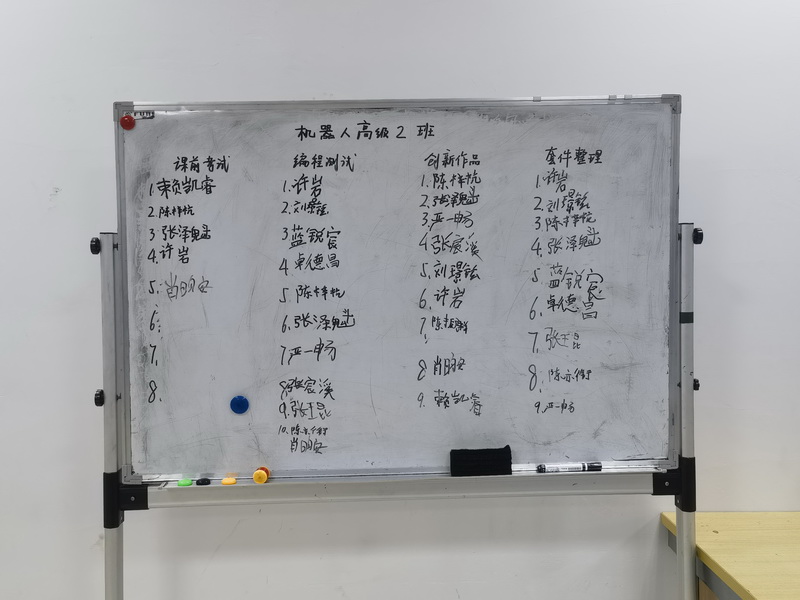 机器人高级2班
课前考试
1.赖凯睿
2.陈梓杭
3.张泽
4.许岩
5.肖明
6.
7.
8.
编程测试
1.许岩
2.刘璟
3.蓝锐宸
4.卓德昌
5.陈梓杭
6.张泽
7.严一畅
8.张宸溪
9.张玉昆
10.陈亦
肖明
创新作品
1.陈梓杭
2.张泽
3.严一畅
4.张宸溪
5.刘璟
6.许岩
7.陈
8.肖明
9.赖凯睿
套件整理
1.许岩
2.刘璟
3.陈梓杭
4.张泽
5.蓝锐宸
6.卓德昌
7.张玉昆
8.陈亦衡
9.严一畅